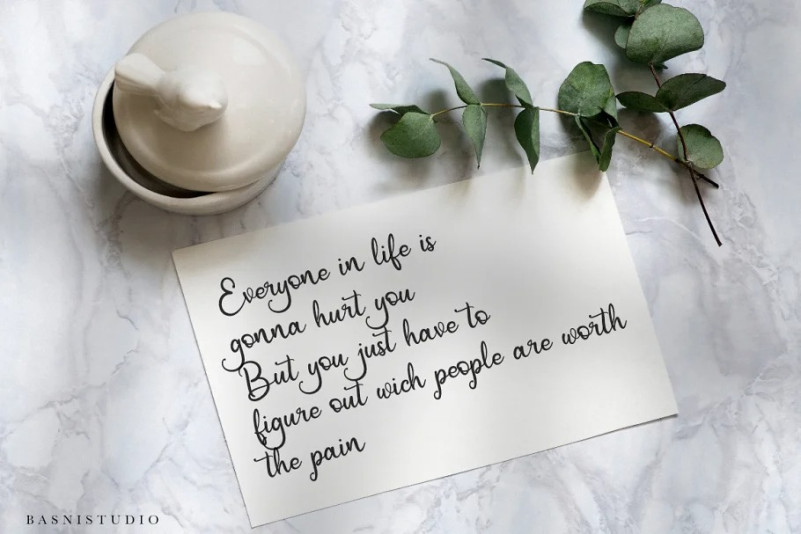 Everyone in life is
gonna hurt you
But you just have to
figure out wich people are worth
the pain
BASNISTUDIO